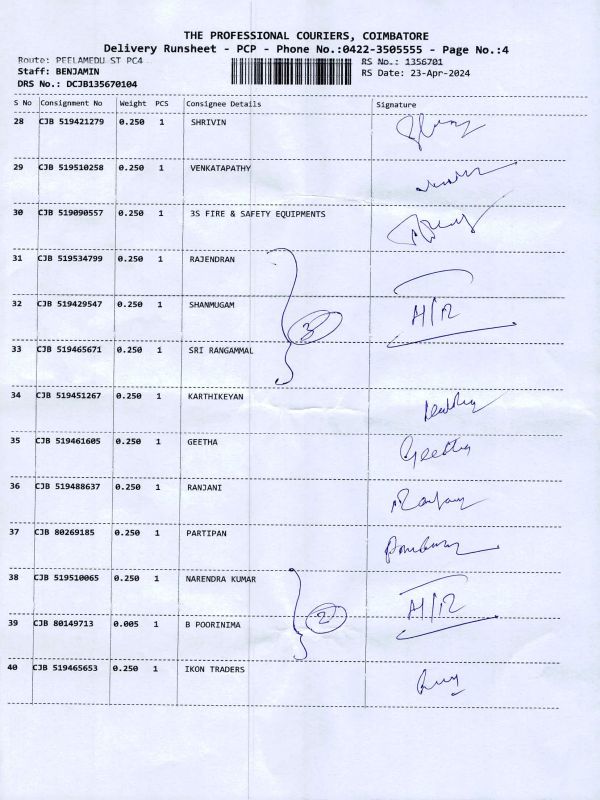 THE PROFESSIONAL COURIERS, COIMBATORE
Delivery Runsheet - PCP - Phone No.:0422-3505555 - Page No.:4
Route: PEELAMEDU ST PC4 RS No.: 1356701
Staff: BENJAMIN RS Date: 23-Apr-2024
DRS No.: DCJB135670104
S No Consignment No Weight PCS Consignee Details Signature
28 CJB 519421279 0.250 1 SHRIVIN
29 CJB 519510258 0.250 1 VENKATAPATHY
30 CJB 519090557 0.250 1 3S FIRE & SAFETY EQUIPMENTS
31 CJB 519534799 0.250 1 RAJENDRAN
32 CJB 519429547 0.250 1 SHANMUGAM 3 A/R
33 CJB 519465671 0.250 1 SRI RANGAMMAL
34 CJB 519451267 0.250 1 KARTHIKEYAN
35 CJB 519461605 0.250 1 GEETHA Geetha
36 CJB 519488637 0.250 1 RANJANI
37 CJB 80269185 0.250 1 PARTIPAN
38 CJB 519510065 0.250 1 NARENDRA KUMAR A/R
39 CJB 80149713 0.005 1 B POORINIMA 2
40 CJB 519465653 0.250 1 IKON TRADERS